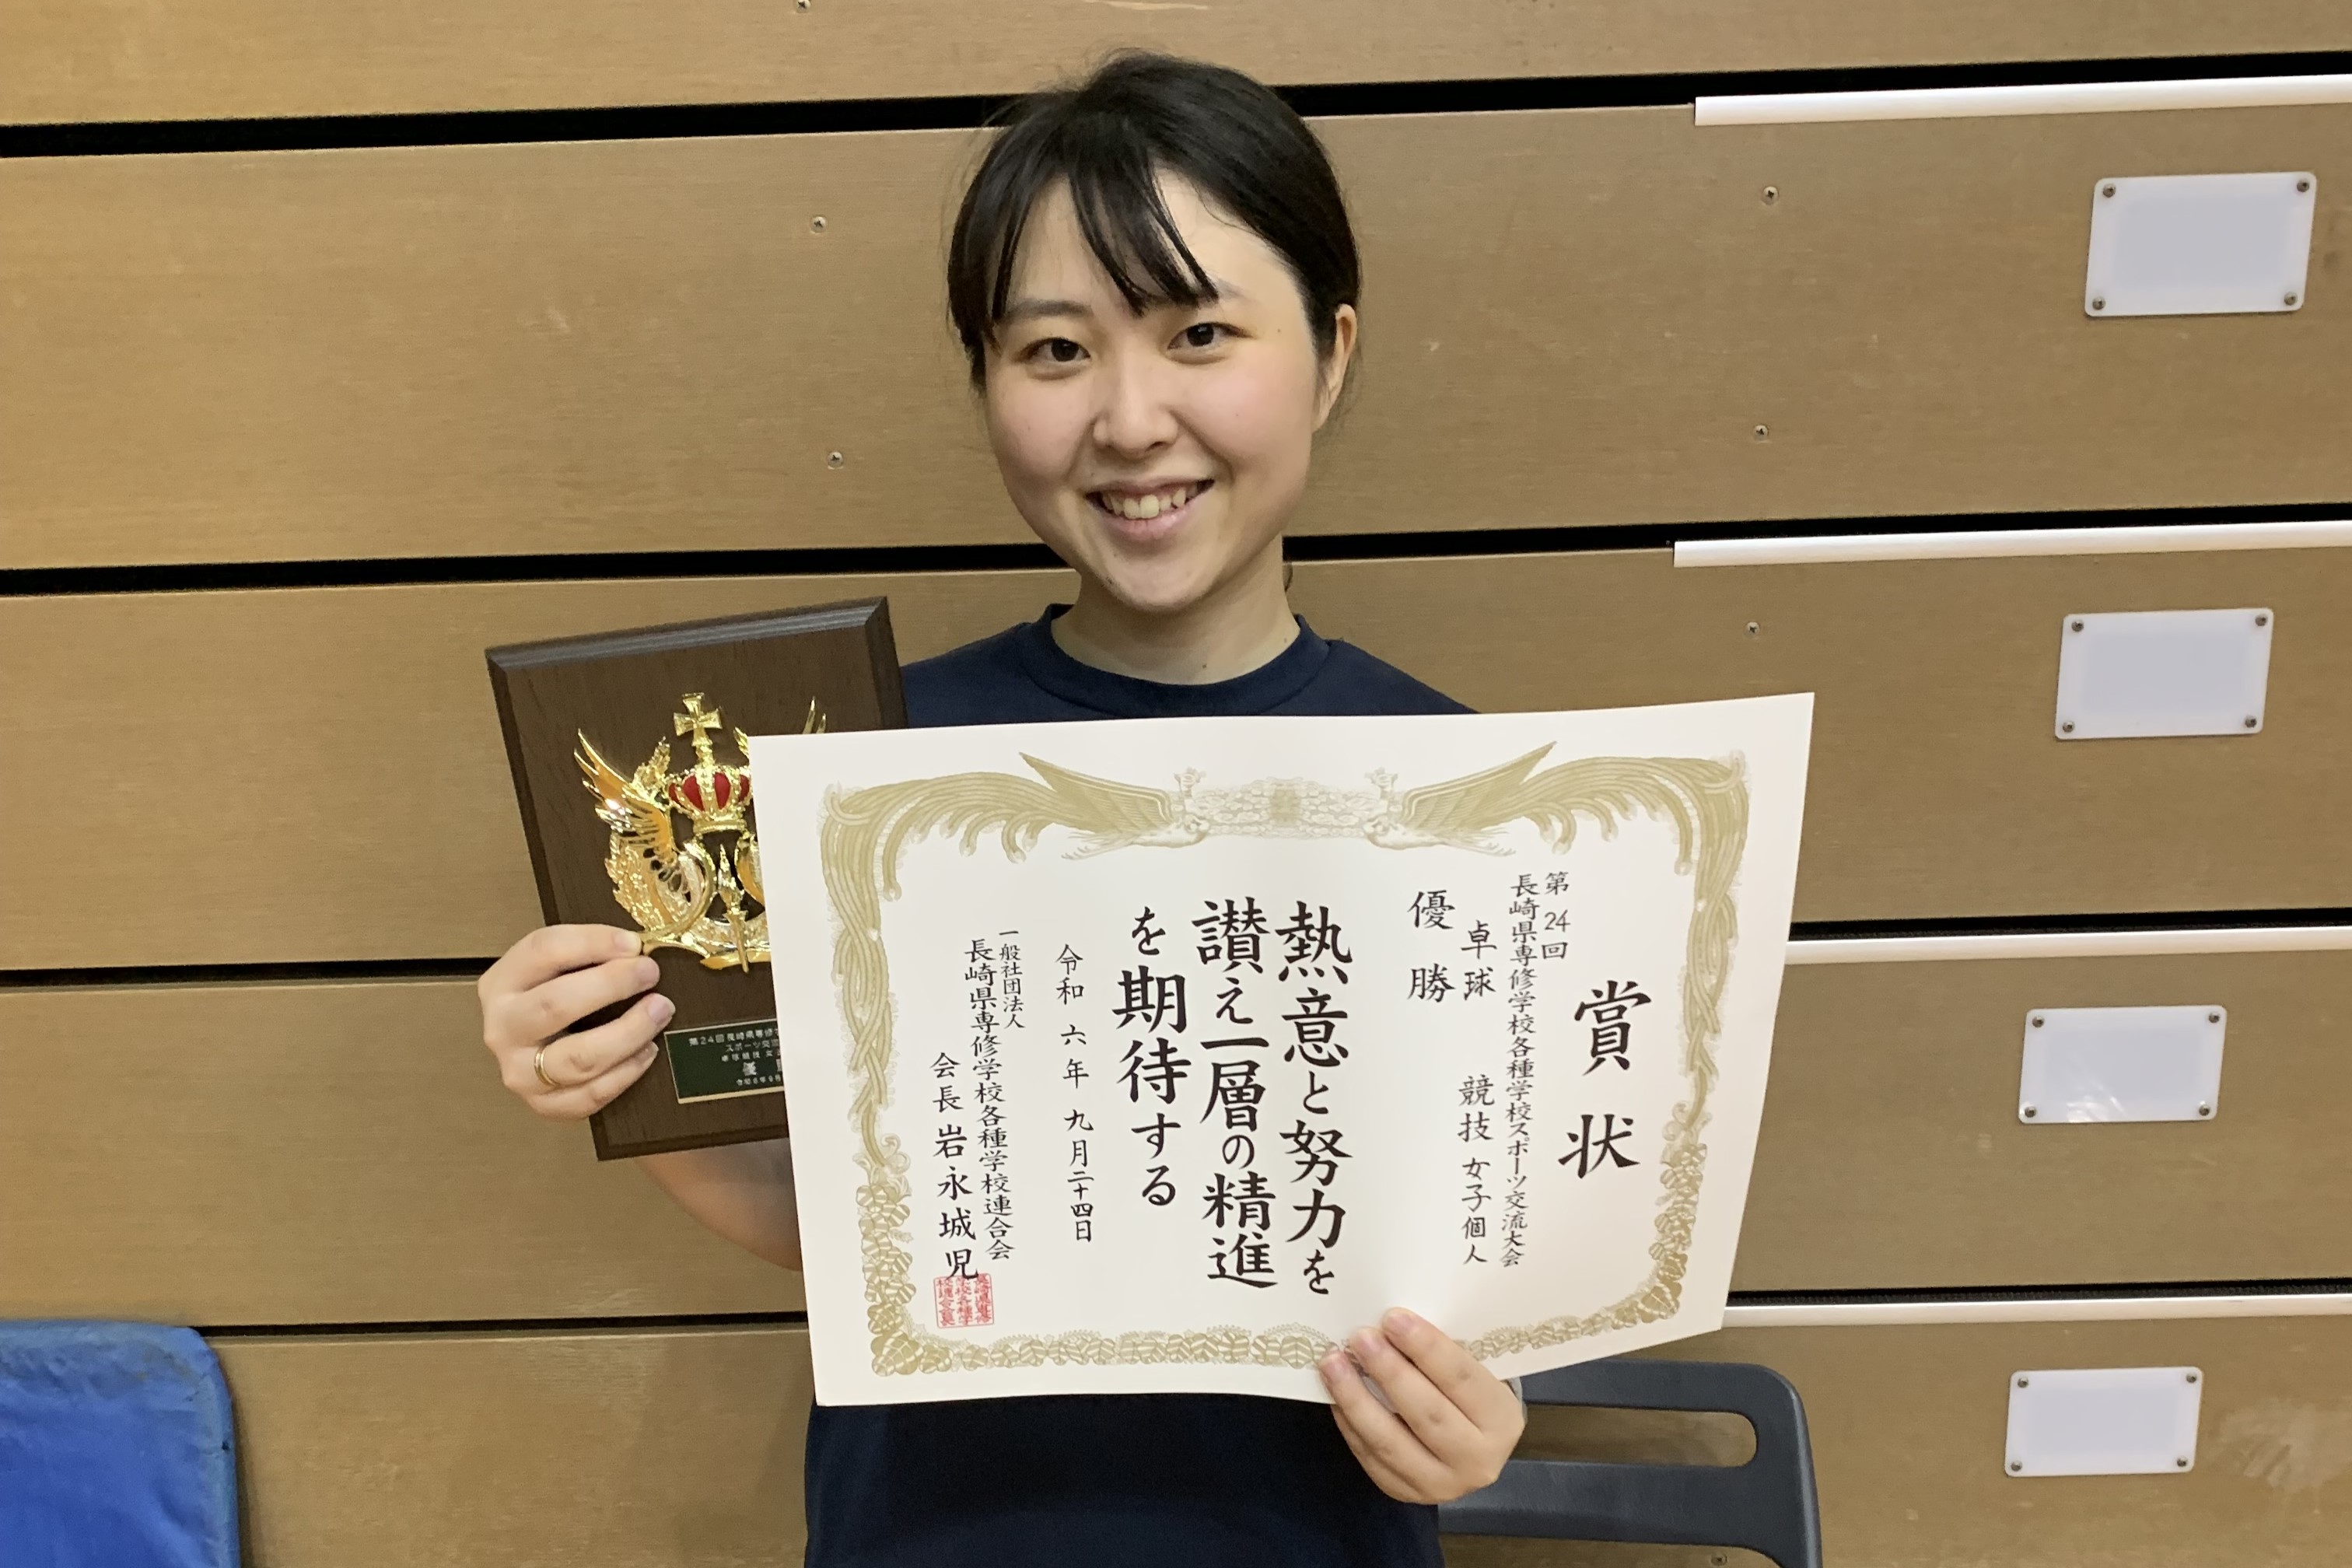 賞状
第24回
長崎県専修学校各種学校スポーツ交流大会
卓球 競技 女子個人
優勝
熱意と努力を
讃え一層の精進
を期待する
令和六年九月二十四日
一般社団法人
長崎県専修学校各種学校連合会
会長 岩永城児
第24回長崎県専修
スポーツ交流
卓球競技 女
優
令和6年9月